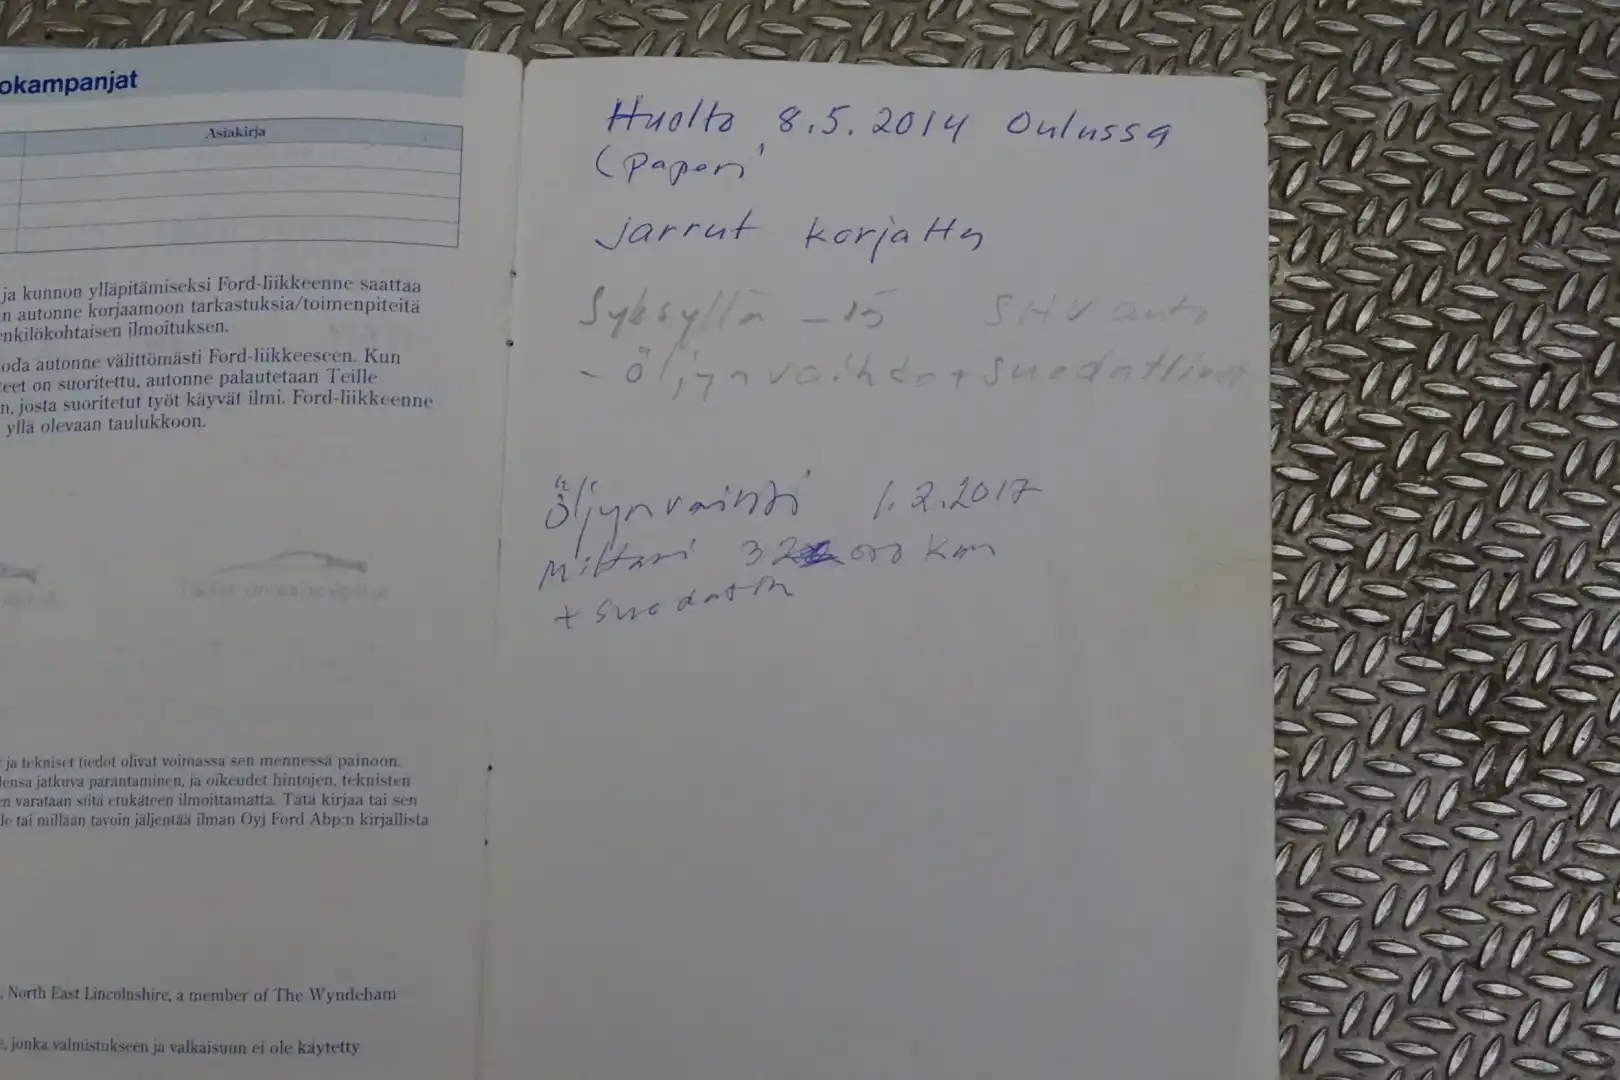 okampanjat
Asiakirja
ja kunnon ylläpitämiseksi Ford-liikkeenne saattaa
n autonne korjaamoon tarkastuksia/toimenpiteitä
enkilökohtaisen ilmoituksen.
oda autonne välittömästi Ford-liikkeeseen. Kun
teet on suoritettu, autonne palautetaan Teille
n, josta suoritetut työt käyvät ilmi. Ford-liikkeenne
yllä olevaan taulukkoon.
ja tekniset tiedot olivat voimassa sen mennessä painoon.
densa jatkuva parantaminen, ja oikeudet hintojen, teknisten
en varataan siitä etukäteen ilmoittamatta. Tätä kirjaa tai sen
le tai millään tavoin jäljentää ilman Oyj Ford Abp:n kirjallista
, North East Lincolnshire, a member of The Wyndeham
e, jonka valmistukseen ja valkaisuun ei ole käytetty
Huolto 8.5.2014 Oulussa
(paperi
jarrut korjattu
Syksyllä -15 SHV auto
- Öljyn vaihdo + suodattimet
Öljynvaihto 1.2.2017
Mittari 32 000 km
+ suodatin